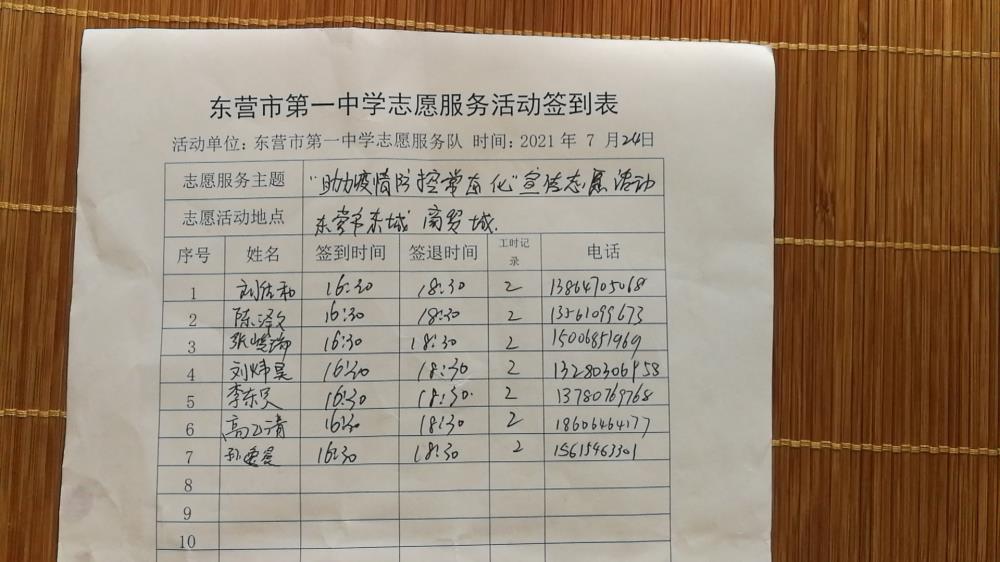 东营市第一中学志愿服务活动签到表
活动单位：东营市第一中学志愿服务队 时间：2021 年 7 月 24日
志愿服务主题 “助力疫情防控常态化”宣传志愿活动
志愿活动地点 东营市东城 商贸城.
序号 姓名 签到时间 签退时间 工时记录 电话
1 刘佐和 16:30 18:30 2 13864705068
2 陈泽久 16:30 18:30 2 13561099673
3 16:30 18:30 2 15006851969
4 刘炜昊 16:30 18:30 2 13280306958
5 李东昊 16:30 18:30 2 13780769768
6 16:30 18:30 2 18606464177
7 16:30 18:30 2 15615463301
8
9
10